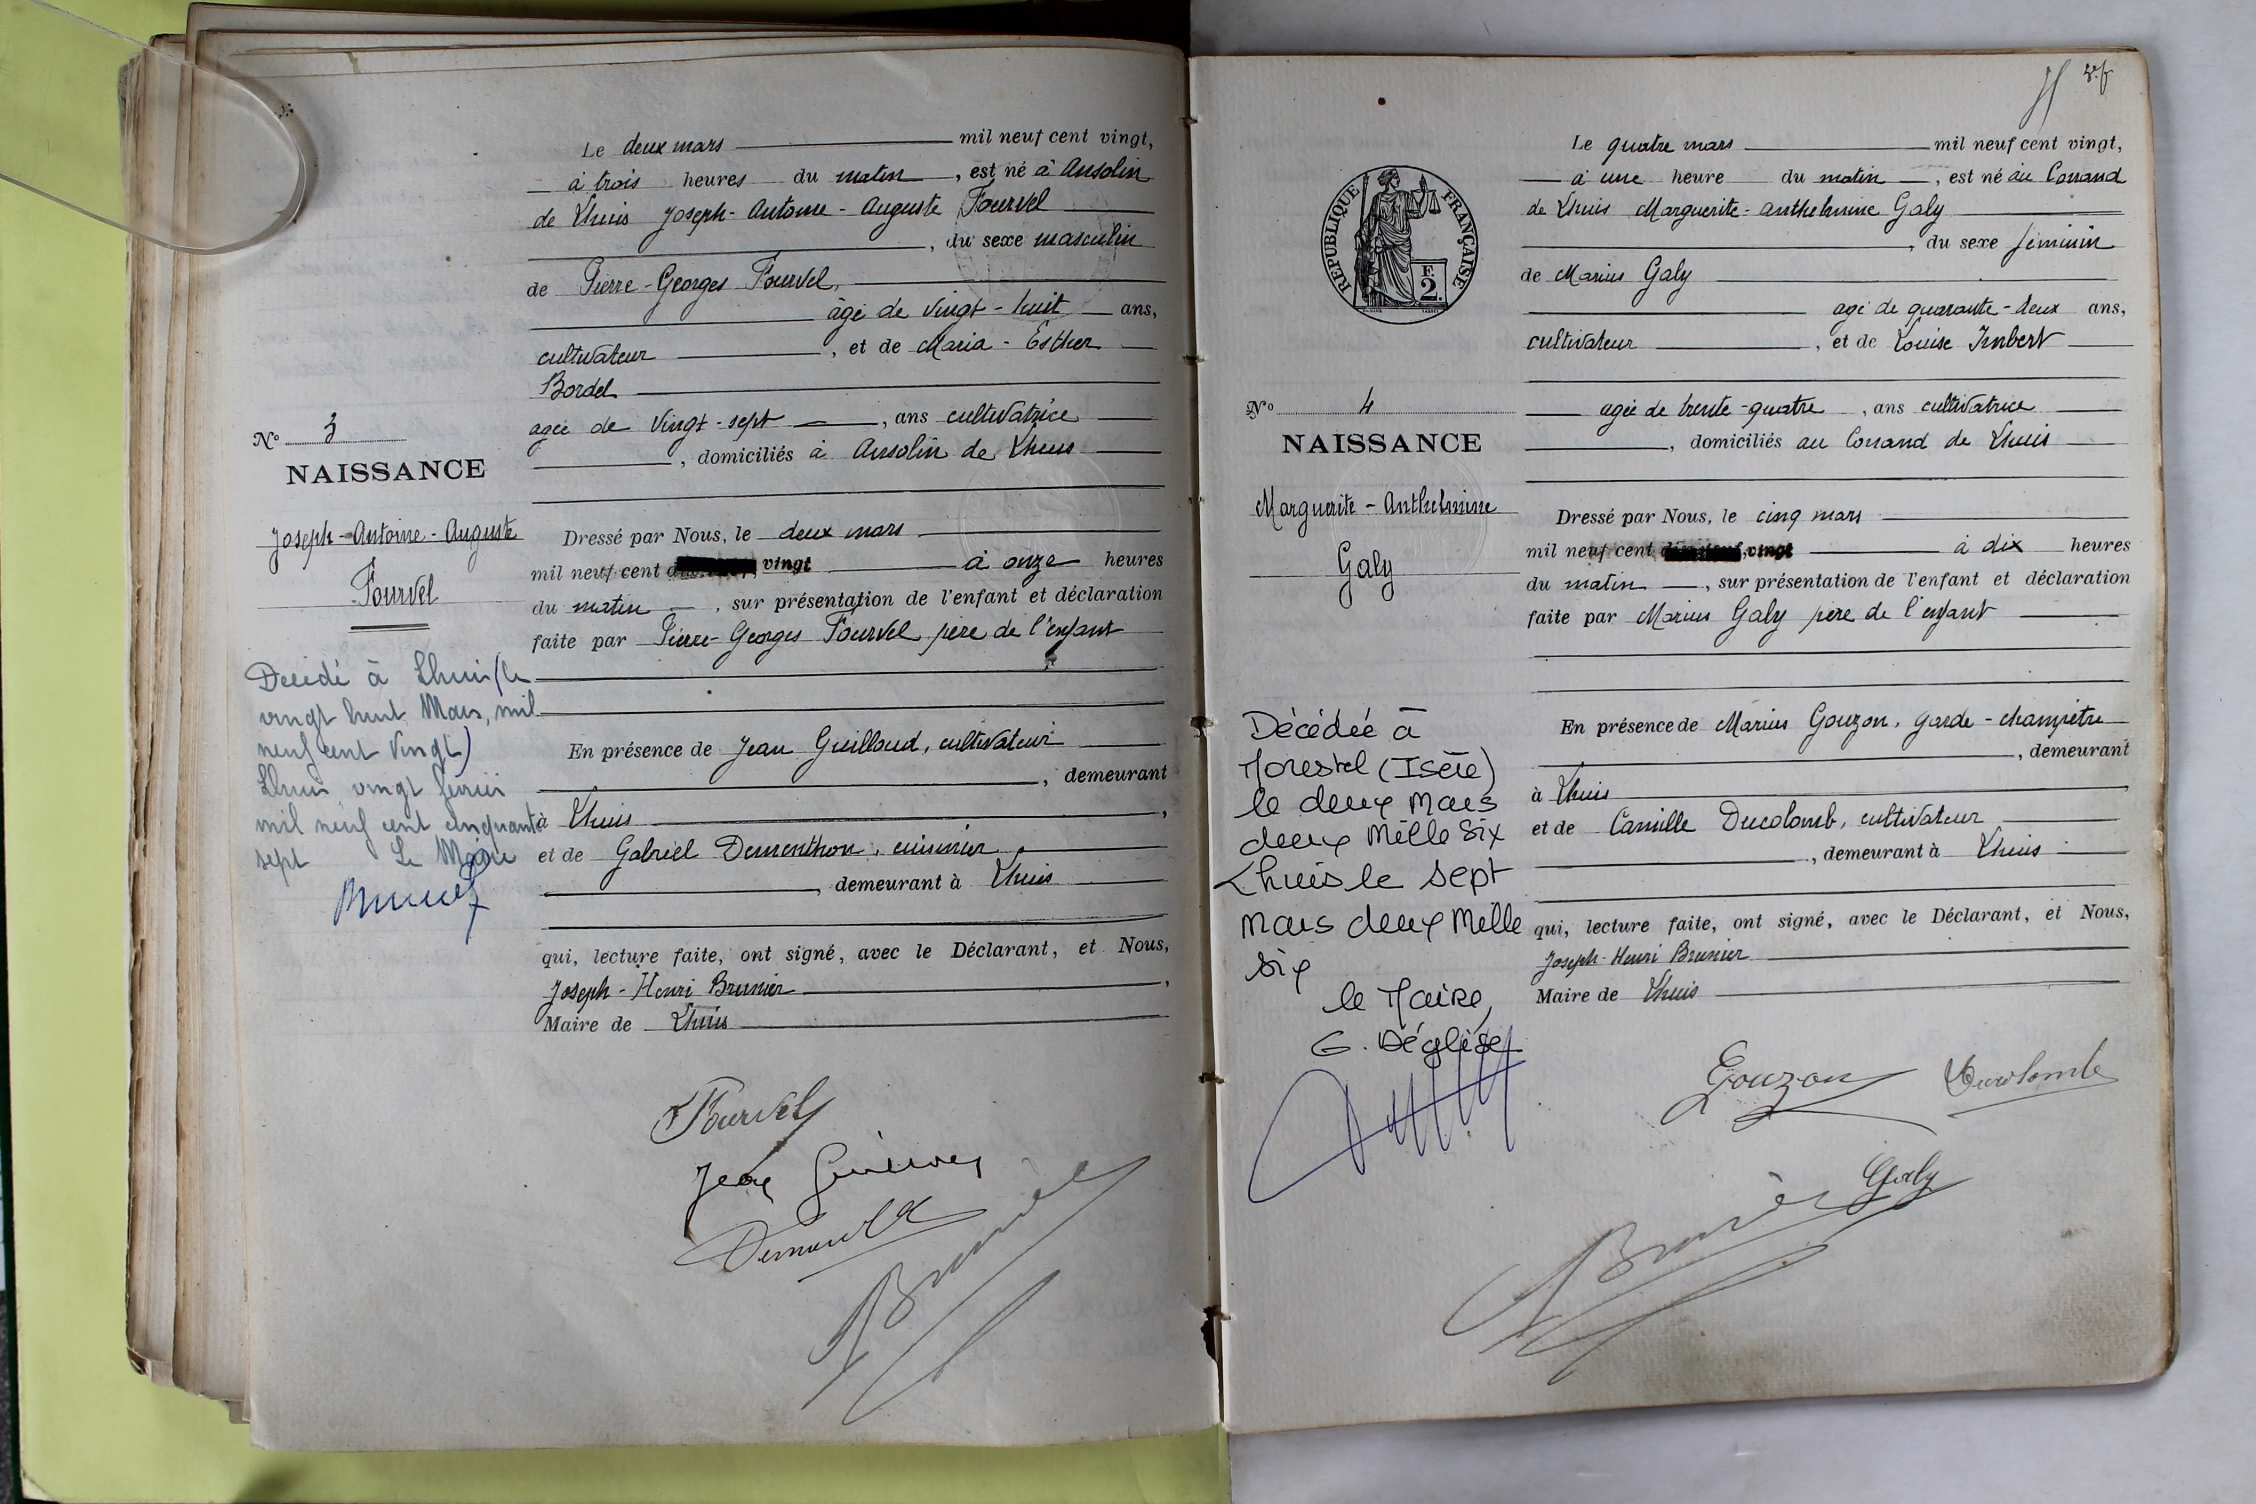 Le deux mars mil neuf cent vingt,
à trois heures du matin, est né à Ansolin
de Lhuis Joseph-Antoine-Auguste Fourvel
, du sexe masculin
de Pierre-Georges Fourvel,
âgé de vingt-huit ans,
cultivateur, et de Maria-Esther
Bordel
agée de vingt-sept, ans cultivatrice
, domiciliés à Ansolin de Lhuis
No 3
NAISSANCE
Joseph-Antoine-Auguste
Fourvel
Décidé à Lhuis (le
vingt huit Mars, mil
neuf cent vingt)
Lhuis vingt février
mil neuf cent cinquante
sept Le Maire
Dressé par Nous, le deux mars
mil neuf cent vingt à onze heures
du matin, sur présentation de l'enfant et déclaration
faite par Pierre-Georges Fourvel père de l'enfant
En présence de Jean Guilloud, cultivateur
, demeurant
à Lhuis,
et de Gabriel Dementhon, cuisinier
, demeurant à Lhuis
qui, lecture faite, ont signé, avec le Déclarant, et Nous,
Joseph-Henri Brunier,
Maire de Lhuis
Fourvel
Jean
Brunier
Le quatre mars mil neuf cent vingt,
à une heure du matin, est né au Corrand
de Lhuis Marguerite-Anthelmine Galy
, du sexe féminin
de Marius Galy
agé de quarante-deux ans,
cultivateur, et de Louise Imbert
agée de trente-quatre, ans cultivatrice
, domiciliés au Corrand de Lhuis
REPUBLIQUE FRANÇAISE
F.
2.
No 4
NAISSANCE
Marguerite-Anthelmine
Galy
Décédée à
Morestel (Isère)
le deux Mars
deux Mille Six
Lhuis le sept
Mars deux Mille
six
le Maire,
G. Déglise
Dressé par Nous, le cinq mars
mil neuf cent vingt à dix heures
du matin, sur présentation de l'enfant et déclaration
faite par Marius Galy père de l'enfant
En présence de Marius Gouzon, garde-champêtre
, demeurant
à Lhuis
et de Camille Ducolomb, cultivateur
, demeurant à Lhuis
qui, lecture faite, ont signé, avec le Déclarant, et Nous,
Joseph-Henri Brunier
Maire de Lhuis
Gouzon Ducolomb
Galy
Brunier